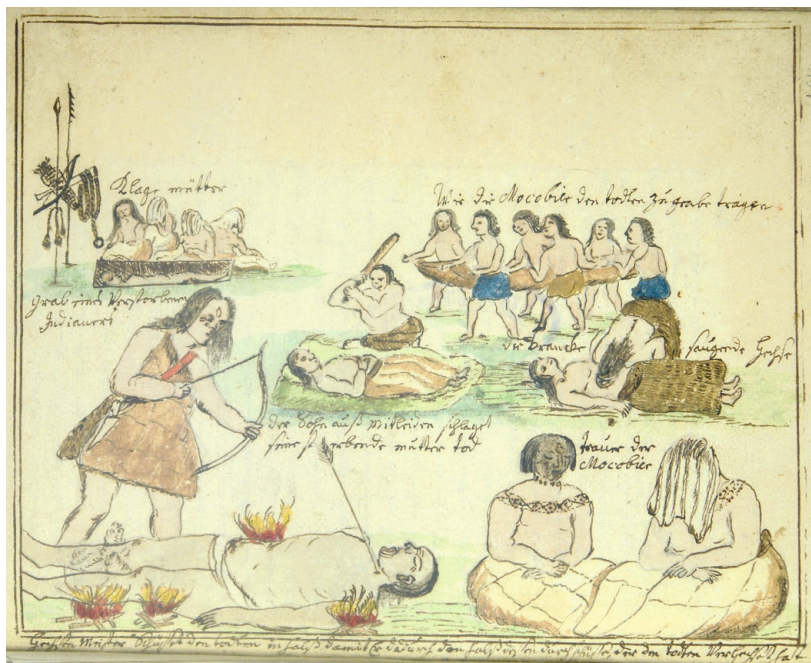 Klage mütter
Wie die Mocobier den todten zu grabe tragen
grab eines Verstorbenen
Indianers
die Krancke saugende Hechse
der Sohn auß mitleiden schlaget
seine sterbende mutter tod
trauer der
Mocobier
Hechsen Meister schüsset den todten in halß damit er dadurch den halß der den todten Verhechset hatt